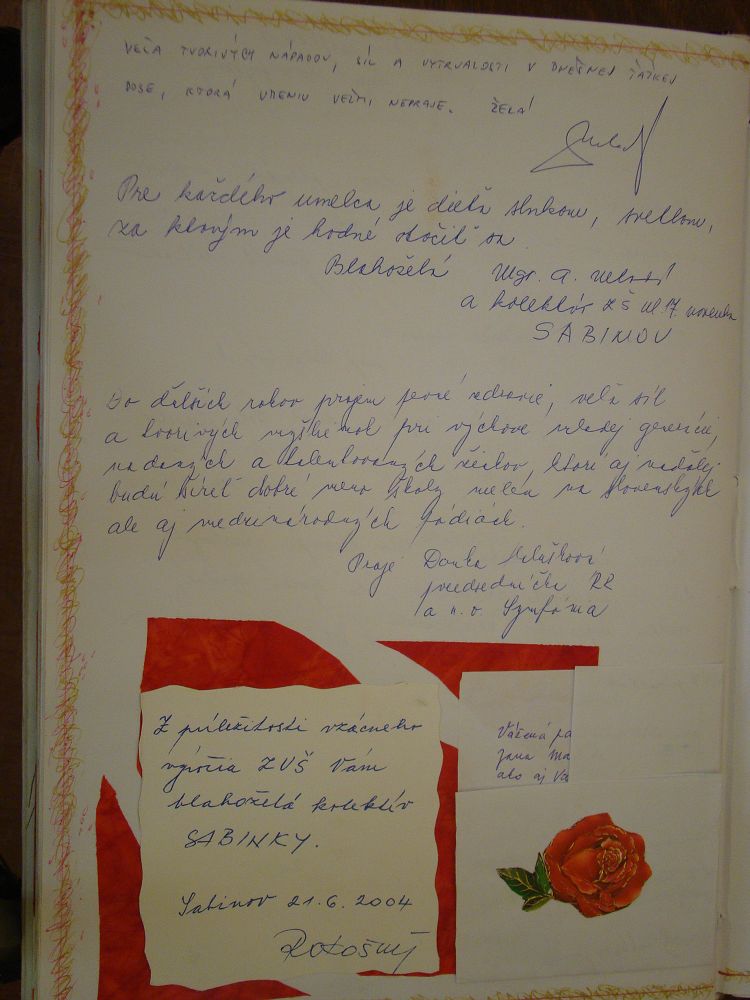 VEĽA TVORIVÝCH NÁPADOV, SÍL A VYTRVALOSTI V DNEŠNEJ ŤAŽKEJ
DOBE, KTORÁ UMENIU VEĽMI NEPRAJE. ŽELÁ
Pre každého umelca je dielo slnkom, svetlom,
za ktorým je hodné otočiť sa.
Blahoželá Mgr. A.
a kolektív ZŠ ul. 17. novembra
SABINOV
Do ďalších rokov prajem pevné zdravie, veľa síl
a tvorivých myšlienok pri výchove mladej generácie,
nadaných a talentovaných žiakov, ktorí aj naďalej
budú šíriť dobré meno školy nielen na slovenských
ale aj medzinárodných pódiách.
Praje Danka
predsedníčka RR
a n. o. Symfónia
Z príležitosti vzácneho
výročia ZUŠ Vám
blahoželá kolektív
SABINKY.
Sabinov 21.6.2004
Vážená pa
Jana Ma
ako aj Vá